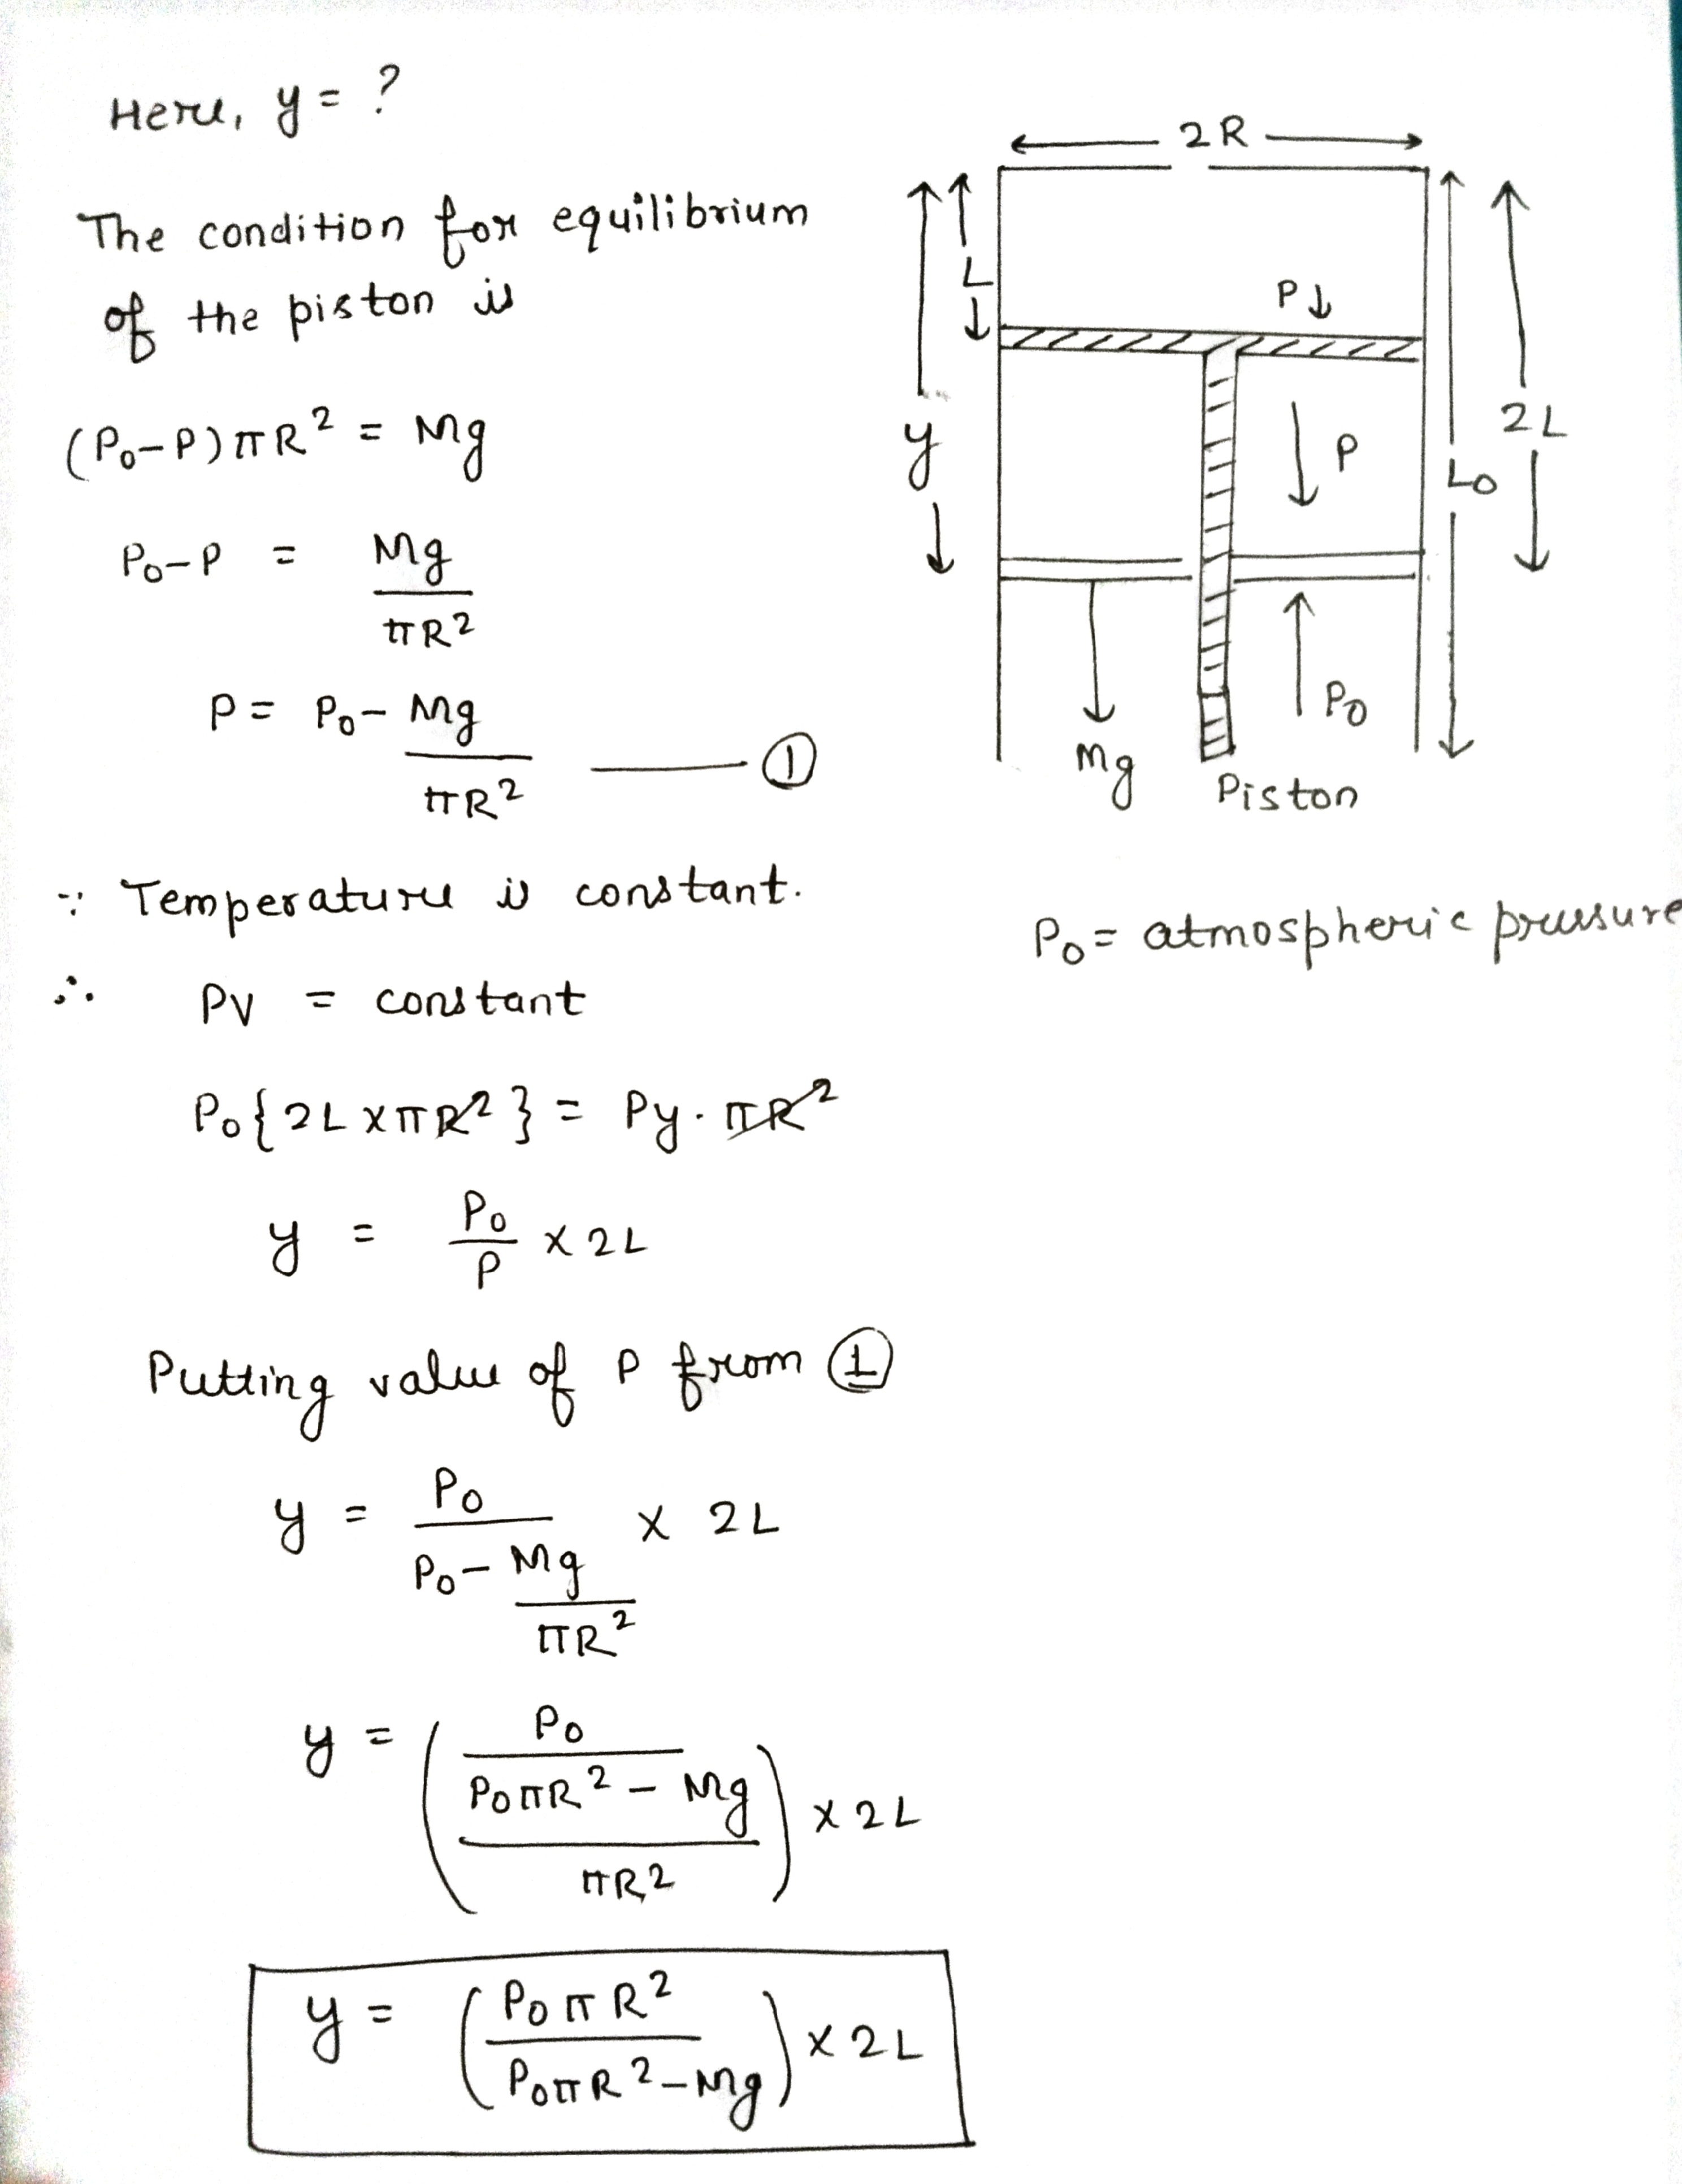 Here, y = ?
The condition for equilibrium
of the piston is
(P₀-P)πR² = Mg
P₀-P = Mg
πR²
P = P₀ - Mg
πR² ——— ①
∵ Temperature is constant.
∴ PV = constant
P₀{2L×πR²} = Py.πR²
y = P₀/P × 2L
Putting value of P from ①
y = P₀ × 2L
P₀ - Mg
πR²
y = ( P₀
P₀πR² - Mg ) × 2L
πR²
y = ( P₀πR²
P₀πR² - Mg ) × 2L
2R
L
P↓
y
P
2L
L0
P₀
Mg
Piston
P₀ = atmospheric pressure